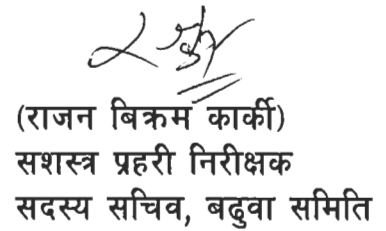 (राजन बिक्रम कार्की)
सशस्त्र प्रहरी निरीक्षक
सदस्य सचिव, बढुवा समिति